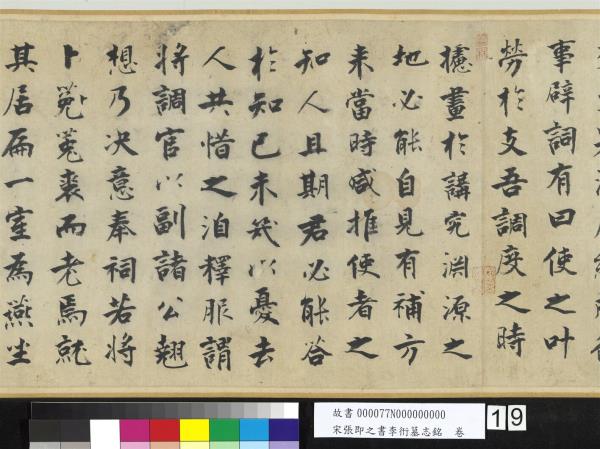 事辟詞有曰使之叶
勞於支吾調度之時
攄畫於講究淵源之
地必能自見有補方
来當時咸推使者之
知人且期君必能答
於知已未幾以憂去
人共惜之洎釋服謂
將調官以副諸公翹
想乃決意奉祠若將
卜菟裘而老焉就
其居扁一室為燕坐
故書 000077N000000000
宋張即之書李衎墓志銘 卷
19